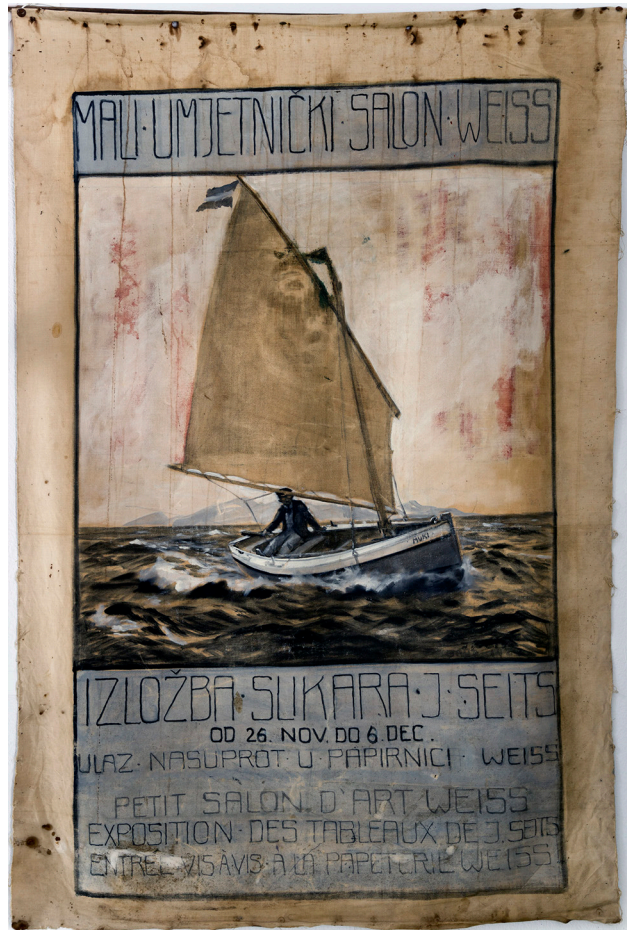 MALI·UMJETNIČKI·SALON·WEISS
MUKI
IZLOŽBA·SLIKARA·J·SEITS
OD 26. NOV. DO 6. DEC.
ULAZ·NASUPROT·U·PAPIRNICI·WEISS
PETIT SALON D'ART WEISS
EXPOSITION·DES TABLEAUX DE J. SEITS
ENTRÉE VIS A VIS·A LA PAPETERIE WEISS